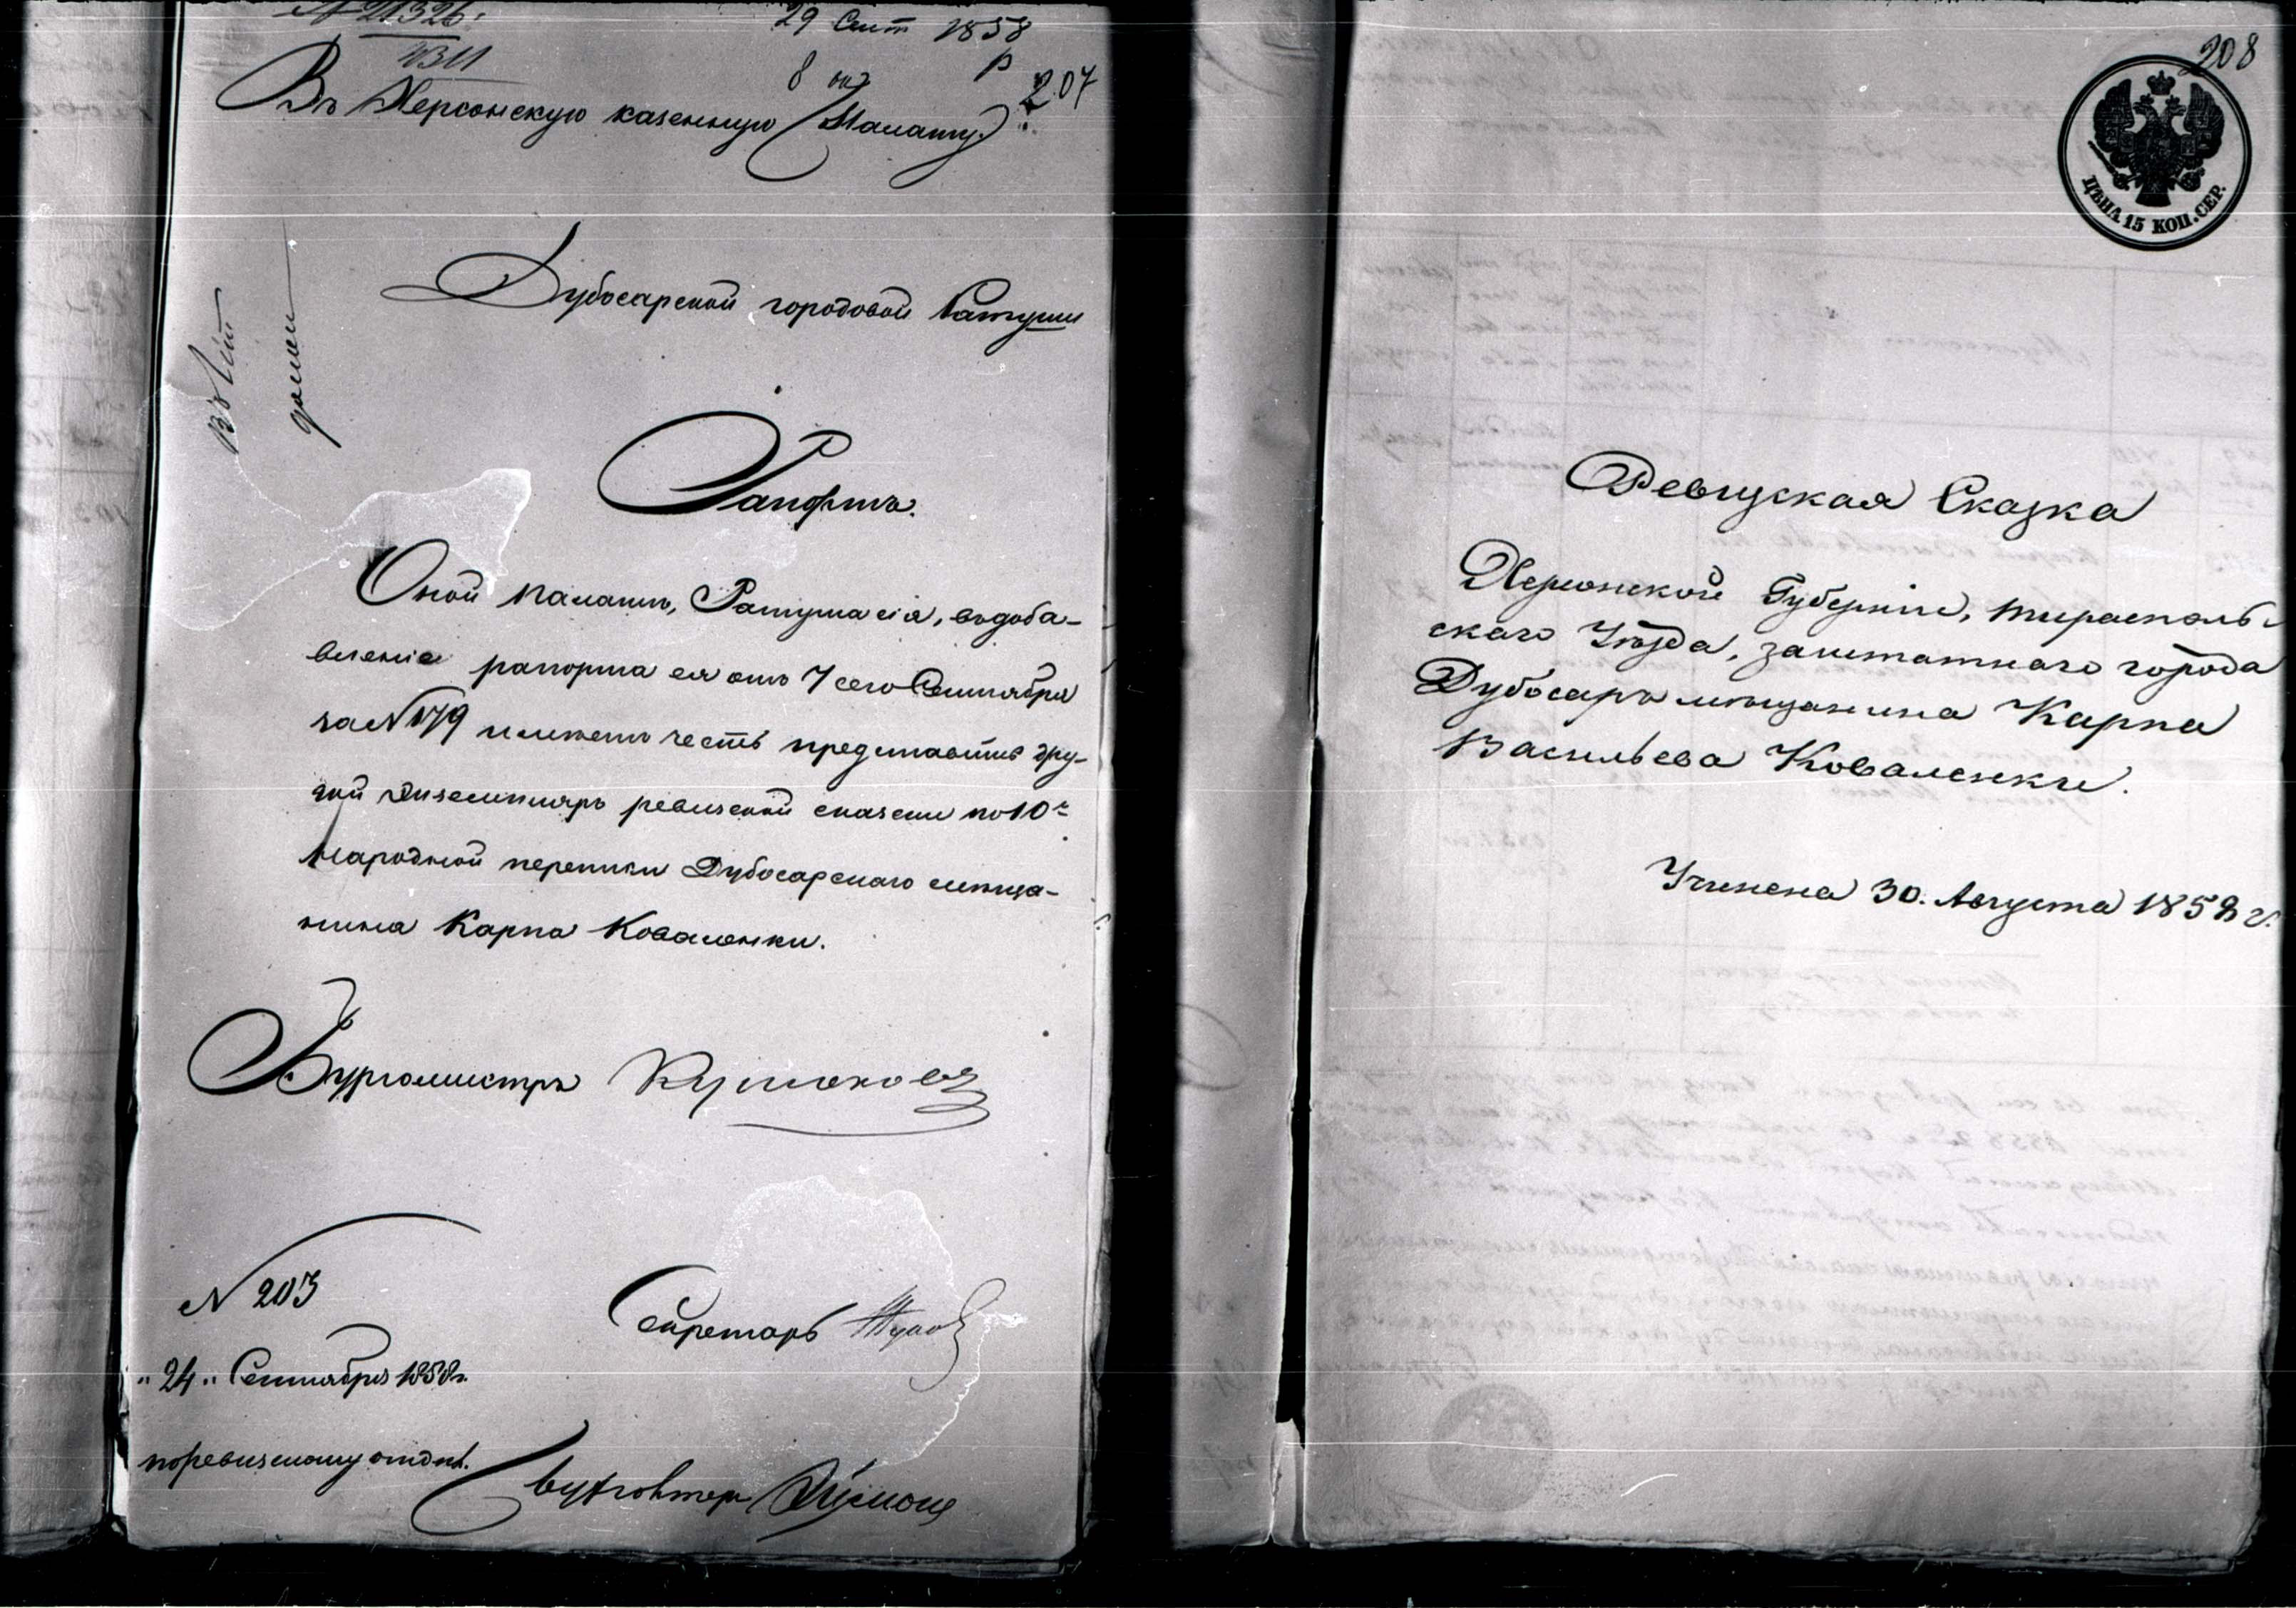 N 21326.
29 Сент 1858
1311
8 окт
207
Въ Херсонскую казенную Палату
Дубосарской городовой Ратуши
Рапортъ.
Оной палатѣ, Ратуша сія, въ доба-
вленіе рапорта ея отъ 7 сего Сентября
за N 179 имѣетъ честь представить дру-
гой экземпляръ ревизской сказки по 10й
народной переписи Дубосарскаго мѣща-
нина Карпа Коваленки.
Бургомистръ
N 203
Секретарь
"24" Сентября 1858 г.
по ревизскому отдѣл.
Бухгалтер
208
ЦѢНА 15 КОП. СЕР.
Ревизская Сказка
Херсонской Губерніи, тирасполь-
скаго Уѣзда, заштатнаго города
Дубосаръ мѣщанина Карпа
Васильева Коваленки.
Учинена 30. Августа 1858 г.